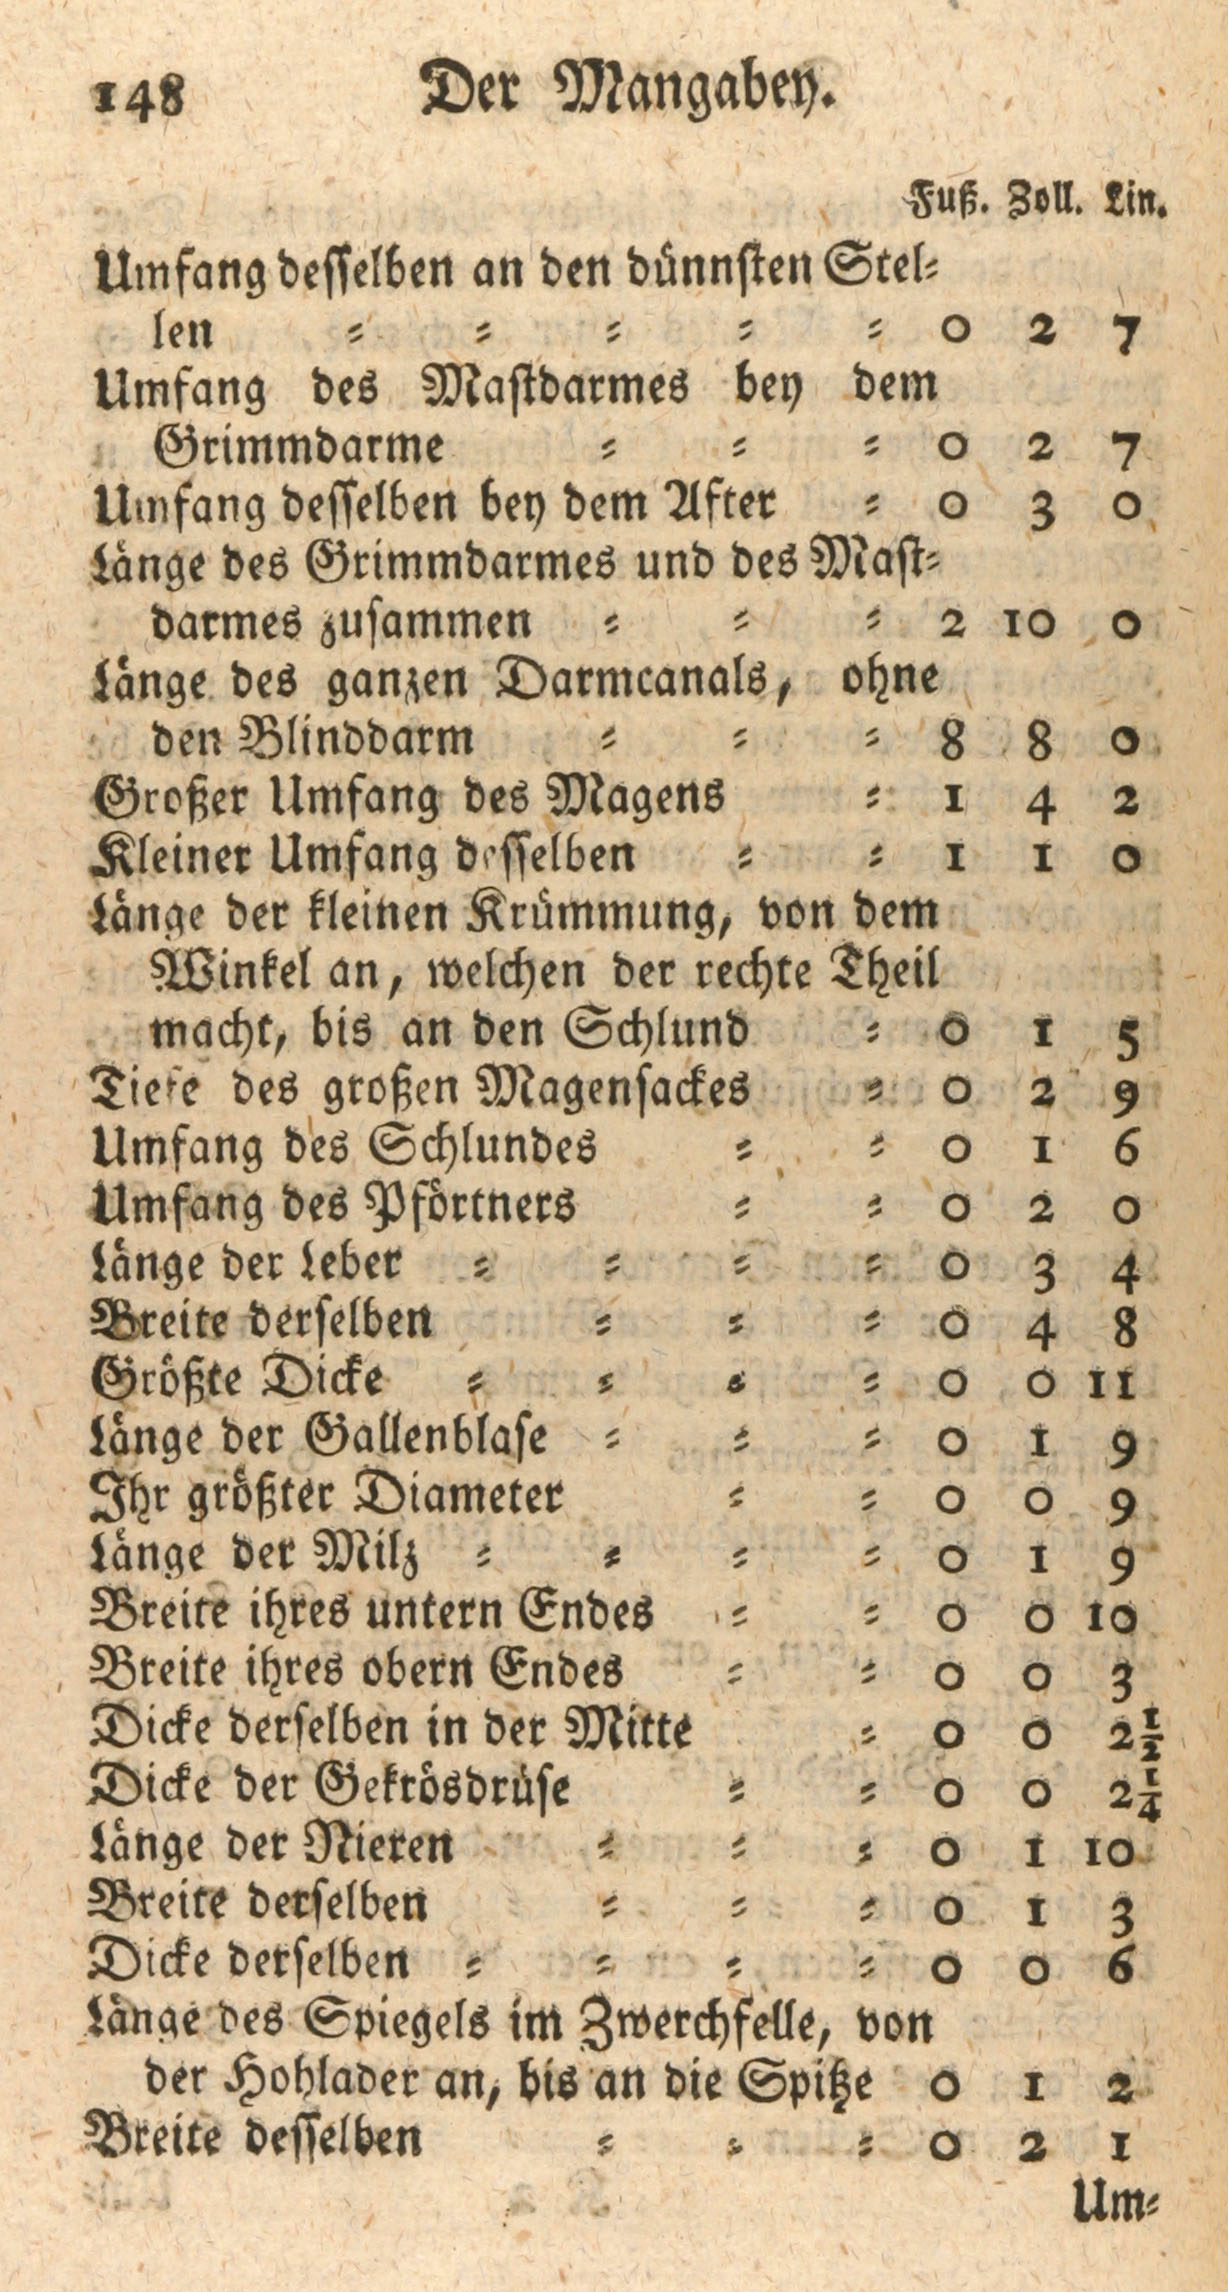 148 Der Mangabey.
Fuß. Zoll. Lin.
Umfang desselben an den dünnsten Stel⸗
len ⸗ ⸗ ⸗ ⸗ ⸗ 0 2 7
Umfang des Mastdarmes bey dem
Grimmdarme ⸗ ⸗ ⸗ 0 2 7
Umfang desselben bey dem After ⸗ 0 3 0
Länge des Grimmdarmes und des Mast⸗
darmes zusammen ⸗ ⸗ ⸗ 2 10 0
Länge des ganzen Darmcanals, ohne
den Blinddarm ⸗ ⸗ ⸗ 8 8 0
Großer Umfang des Magens ⸗ 1 4 2
Kleiner Umfang desselben ⸗ ⸗ 1 1 0
Länge der kleinen Krümmung, von dem
Winkel an, welchen der rechte Theil
macht, bis an den Schlund ⸗ 0 1 5
Tiefe des großen Magensackes ⸗ 0 2 9
Umfang des Schlundes ⸗ ⸗ 0 1 6
Umfang des Pförtners ⸗ ⸗ 0 2 0
Länge der Leber ⸗ ⸗ ⸗ ⸗ 0 3 4
Breite derselben ⸗ ⸗ ⸗ 0 4 8
Größte Dicke ⸗ ⸗ ⸗ ⸗ 0 0 11
Länge der Gallenblase ⸗ ⸗ ⸗ 0 1 9
Ihr größter Diameter ⸗ ⸗ 0 0 9
Länge der Milz ⸗ ⸗ ⸗ ⸗ 0 1 9
Breite ihres untern Endes ⸗ ⸗ 0 0 10
Breite ihres obern Endes ⸗ ⸗ 0 0 3
Dicke derselben in der Mitte ⸗ 0 0 2½
Dicke der Gekrösdrüse ⸗ ⸗ 0 0 2¼
Länge der Nieren ⸗ ⸗ ⸗ 0 1 10
Breite derselben ⸗ ⸗ ⸗ 0 1 3
Dicke derselben ⸗ ⸗ ⸗ ⸗ 0 0 6
Länge des Spiegels im Zwerchfelle, von
der Hohlader an, bis an die Spitze 0 1 2
Breite desselben ⸗ ⸗ ⸗ 0 2 1
Um⸗